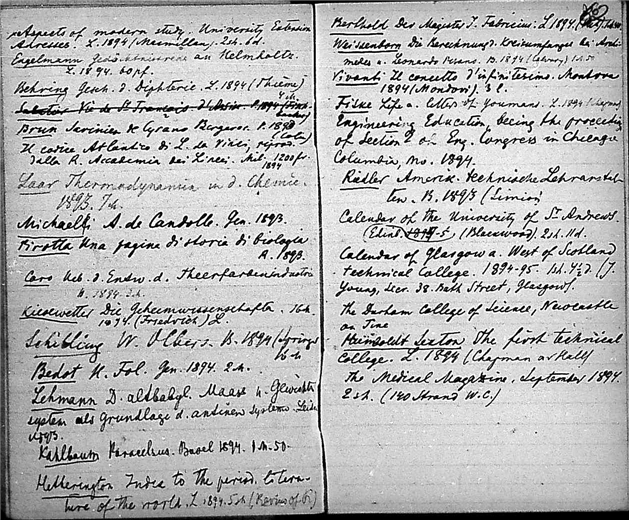 Aspects of modern study. University Extension
Adresses. L. 1894 (Macmillan). 2sh. 6d.
Engelmann Gedächtnisrede an Helmholtz.
L. 1894. 60 pf.
Behring Gesch. d. Diphterie. L. 1894 (Thieme)
Sabatier Vie de St François d'Assise P. 1894
Brun Savinien de Cyrano Bergerac. P. 1893
Il codice Atlantico di L. da Vinci, riprod.
dalla R. Accademia dei Lincei. Mil. 1200 fr.
1894
Laar Thermodynamik in d. Chemie.
1893. 7 M.
Michaelli A. de Candolle. Gen. 1893.
Pirotta Una pagina di storia di biologia
R. 1893.
Caro Ueb. d. Entw. d. Theerfarbenindustrie
B. 1894.
Kiesewetter Die Geheimwissenschafte. 16 M.
1894. (Friedrich) L.
Schilling W. Olbers. B. 1894 (Springer
16 M
Bedot H. Fol. Gen. 1894. 2 M.
Lehmann D. altbabyl. Maass u. Gewichts
system als Grundlage d. antiken Systeme. Leid.
1893.
Kahlbaum Paracelsus. Basel 1894. 1 M. 50.
Hetherington India to the period. litera-
ture of the world. L. 1894. 5sh (Review of R.)
Berthold Der Magister J. Fabricius. L. 1894.
Weissenborn Die Berechnung d. Kreisumfanges bei Archi-
medes u. Leonardo Pisano. B. 1894 (Calvary)
Vivanti Il concetto d'infinitesimo. Mantova
1894 (Mondovi). 3 l.
Fiske Life a. letters of Youmans. L. 1894
Engineering Education, being the proceedings
of Section E of Eng. Congress in Chicago
Columbia, Mo. 1894.
Riedler Amerik. technische Lehranstal-
ten. B. 1893 (Simion)
Calendar of the University of St. Andrews.
(Edinb. 1894-5. (Blackwood). 2sh. 11d.
Calendar of Glasgow a. West of Scotland
technical College. 1894-95. 1sh. 4½d. (J.
Young, Secr. 38 Bath Street, Glasgow).
The Durham College of Science, Newcastle
on Tine
Humboldt Sexton The first technical
College. L. 1894 (Chapman a. Hall)
The Medical Magazine, September 1894.
2sh. (140 Strand W.C.)